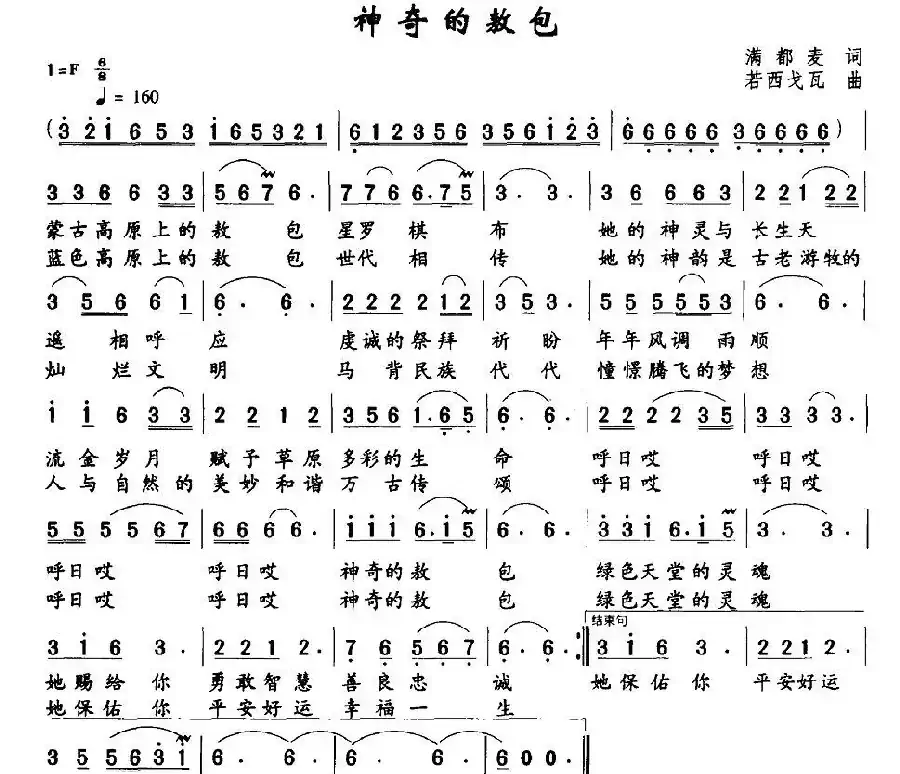 神奇的敖包
满都麦 词
1=F 6/8
若西戈瓦 曲
♩= 160
(3 2 1 6 5 3 1 6 5 3 2 1 | 6 1 2 3 5 6 3 5 6 1 2 3 | 6 6 6 6 6 3 6 6 6 6)
3 3 6 6 3 3 | 5 6 7 6. | 7 7 6 6. 7 5 | 3. 3. | 3 6 6 6 3 | 2 2 1 2 2
蒙古高原上的敖 包 星罗 棋 布 她的神灵与长生天
蓝色高原上的敖 包 世代 相 传 她的神韵是古老游牧的
3 5 6 6 1 | 6. 6. | 2 2 2 2 1 2 | 3 5 3. | 5 5 5 5 5 3 | 6. 6.
遥 相呼 应 虔诚的祭拜 祈 盼 年年风调 雨 顺
灿 烂文 明 马 背民族 代 代 憧憬腾飞的梦 想
1 1 6 3 3 | 2 2 1 2 | 3 5 6 1. 6 5 | 6. 6. | 2 2 2 2 3 5 | 3 3 3 3.
流金岁月 赋予草原多彩的生 命 呼日哎 呼日哎
人与自然的美妙和谐万古传 颂 呼日哎 呼日哎
5 5 5 5 6 7 | 6 6 6 6. | 1 1 1 6. 1 5 | 6. 6. | 3 3 1 6. 1 5 | 3. 3.
呼日哎 呼日哎 神奇的敖 包 绿色天堂的灵 魂
呼日哎 呼日哎 神奇的敖 包 绿色天堂的灵 魂
结束句
3 1 6 3. | 2 2 1 2. | 7 6 5 6 7 | 6. 6. :| 3 1 6 3. | 2 2 1 2.
她赐给你 勇敢智慧 善良忠 诚 她保佑你 平安好运
她保佑你 平安好运 幸福一 生
3 5 5 6 3 1 | 6. 6. | 6. 6. | 6 0 0.